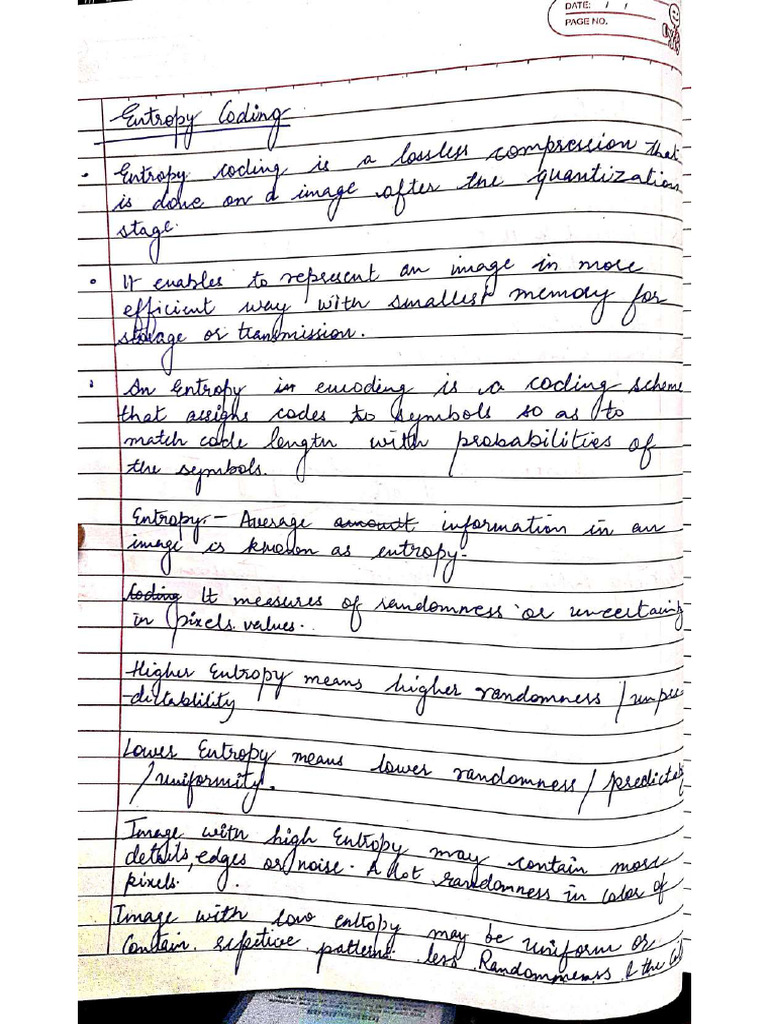 DATE: / /
PAGE NO.
Entropy Coding
• Entropy coding is a lossless compression that
is done on a image after the quantization
stage.
• It enables to represent an image in more
efficient way with smallest memory for
storage or transmission.
• An Entropy in encoding is a coding scheme
that assigns codes to symbols so as to
match code length with probabilities of
the symbols.
Entropy:- Average amount information in an
image is known as entropy-
Coding It measures of randomness or uncertainty
in pixels values.
Higher Entropy means higher randomness / unpre
-dictablility
Lower Entropy means lower randomness / predictab
/uniformity.
Image with high Entropy may contain more
details, edges or noise. A lot randomness in color of
pixels.
Image with low entropy may be uniform or
Contain repitive patterns. less Randomness & the